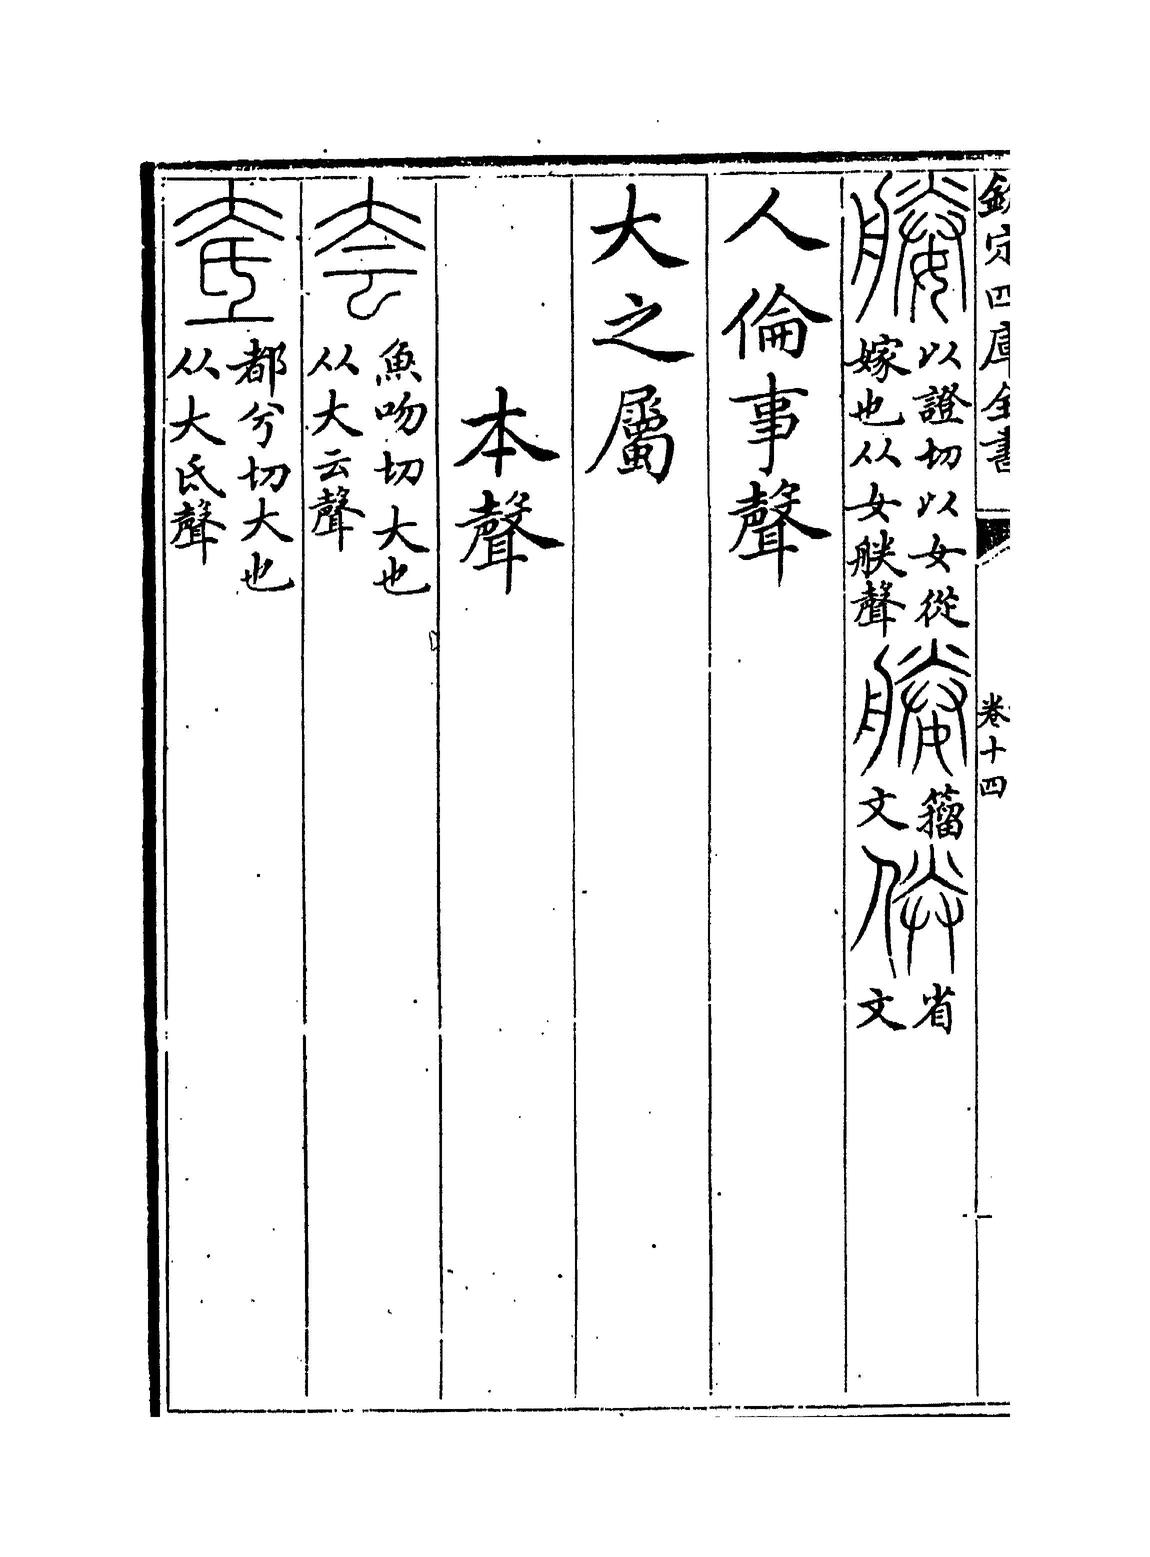 欽定四庫全書
卷十四
媵 以證切以女從嫁也从女朕聲 籀文 省文
人倫事聲
大之屬
本聲
夽 魚吻切大也从大云聲
奃 都兮切大也从大氐聲